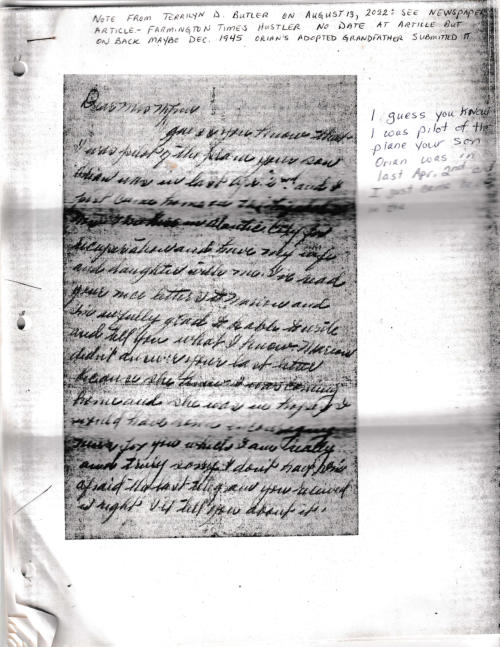 NOTE FROM TERRILYN D. BUTLER ON AUGUST 13, 2022: SEE NEWSPAPER
ARTICLE - FARMINGTON TIMES HUSTLER NO DATE AT ARTICLE BUT
ON BACK MAYBE DEC. 1945 ORIAN'S ADOPTED GRANDFATHER SUBMITTED IT
Dear Mrs
guess you know that
I was pilot of the plane your son
Orian was in last Apr. 2nd and I
just came home on the
in Atlantic City for
recuperation and have my wife
and daughter with me. I've read
your nice letters to Marian and
I'm awfully glad to be able to write
and tell you what I know. Marian
didn't answer your last letter
because she knew I was coming
home and she was in hopes I
would have some encouraging
news for you which I am really
and truly sorry I don't have. I'm
afraid the last telegram you received
is right. I'll tell you about it.
I guess you know
I was pilot of the
plane your son
Orian was in
last Apr. 2nd and
I just came